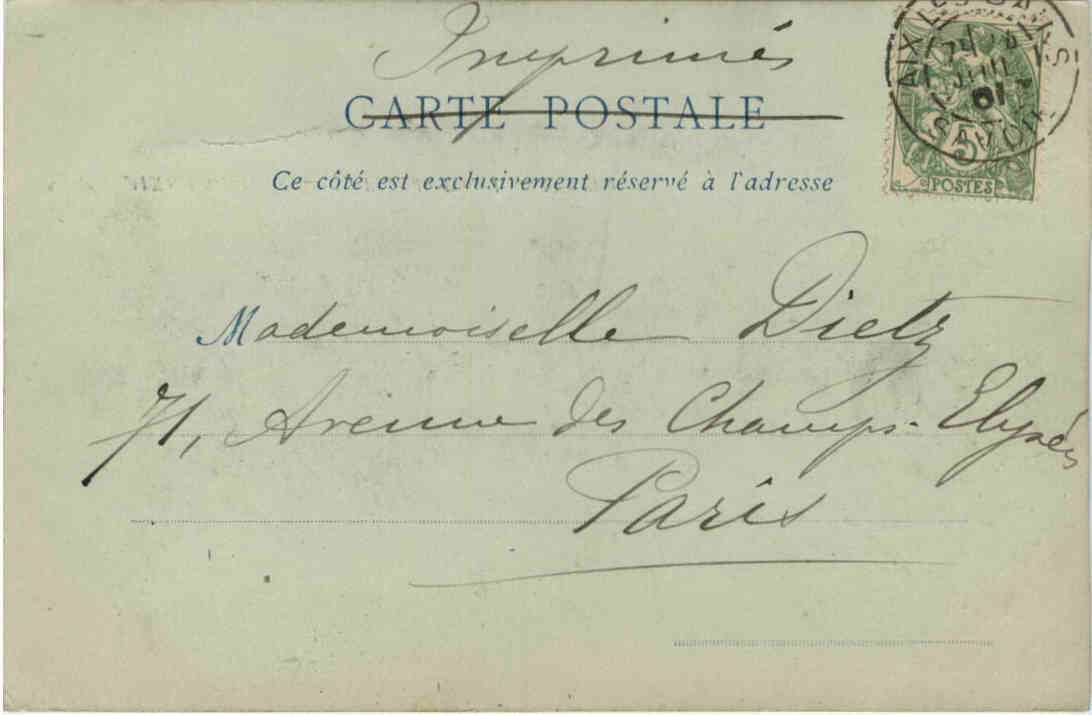 Imprimés
CARTE POSTALE
Ce côté est exclusivement réservé à l'adresse
AIX LES BAINS
SAVOIE
5
POSTES
Mademoiselle Dietz
71, Avenue des Champs-Elysées
Paris